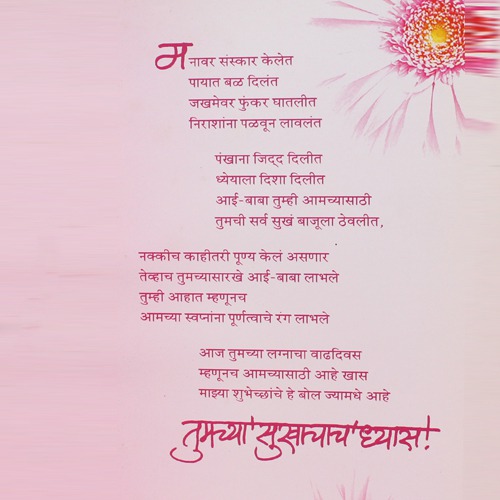 मनावर संस्कार केलेत
पायात बळ दिलंत
जखमेवर फुंकर घातलीत
निराशांना पळवून लावलंत
पंखाना जिद्द दिलीत
ध्येयाला दिशा दिलीत
आई-बाबा तुम्ही आमच्यासाठी
तुमची सर्व सुखं बाजूला ठेवलीत,
नक्कीच काहीतरी पूण्य केलं असणार
तेव्हाच तुमच्यासारखे आई-बाबा लाभले
तुम्ही आहात म्हणूनच
आमच्या स्वप्नांना पूर्णत्वाचे रंग लाभले
आज तुमच्या लग्नाचा वाढदिवस
म्हणूनच आमच्यासाठी आहे खास
माझ्या शुभेच्छांचे हे बोल ज्यामधे आहे
तुमच्या 'सुखाचाच' ध्यास!